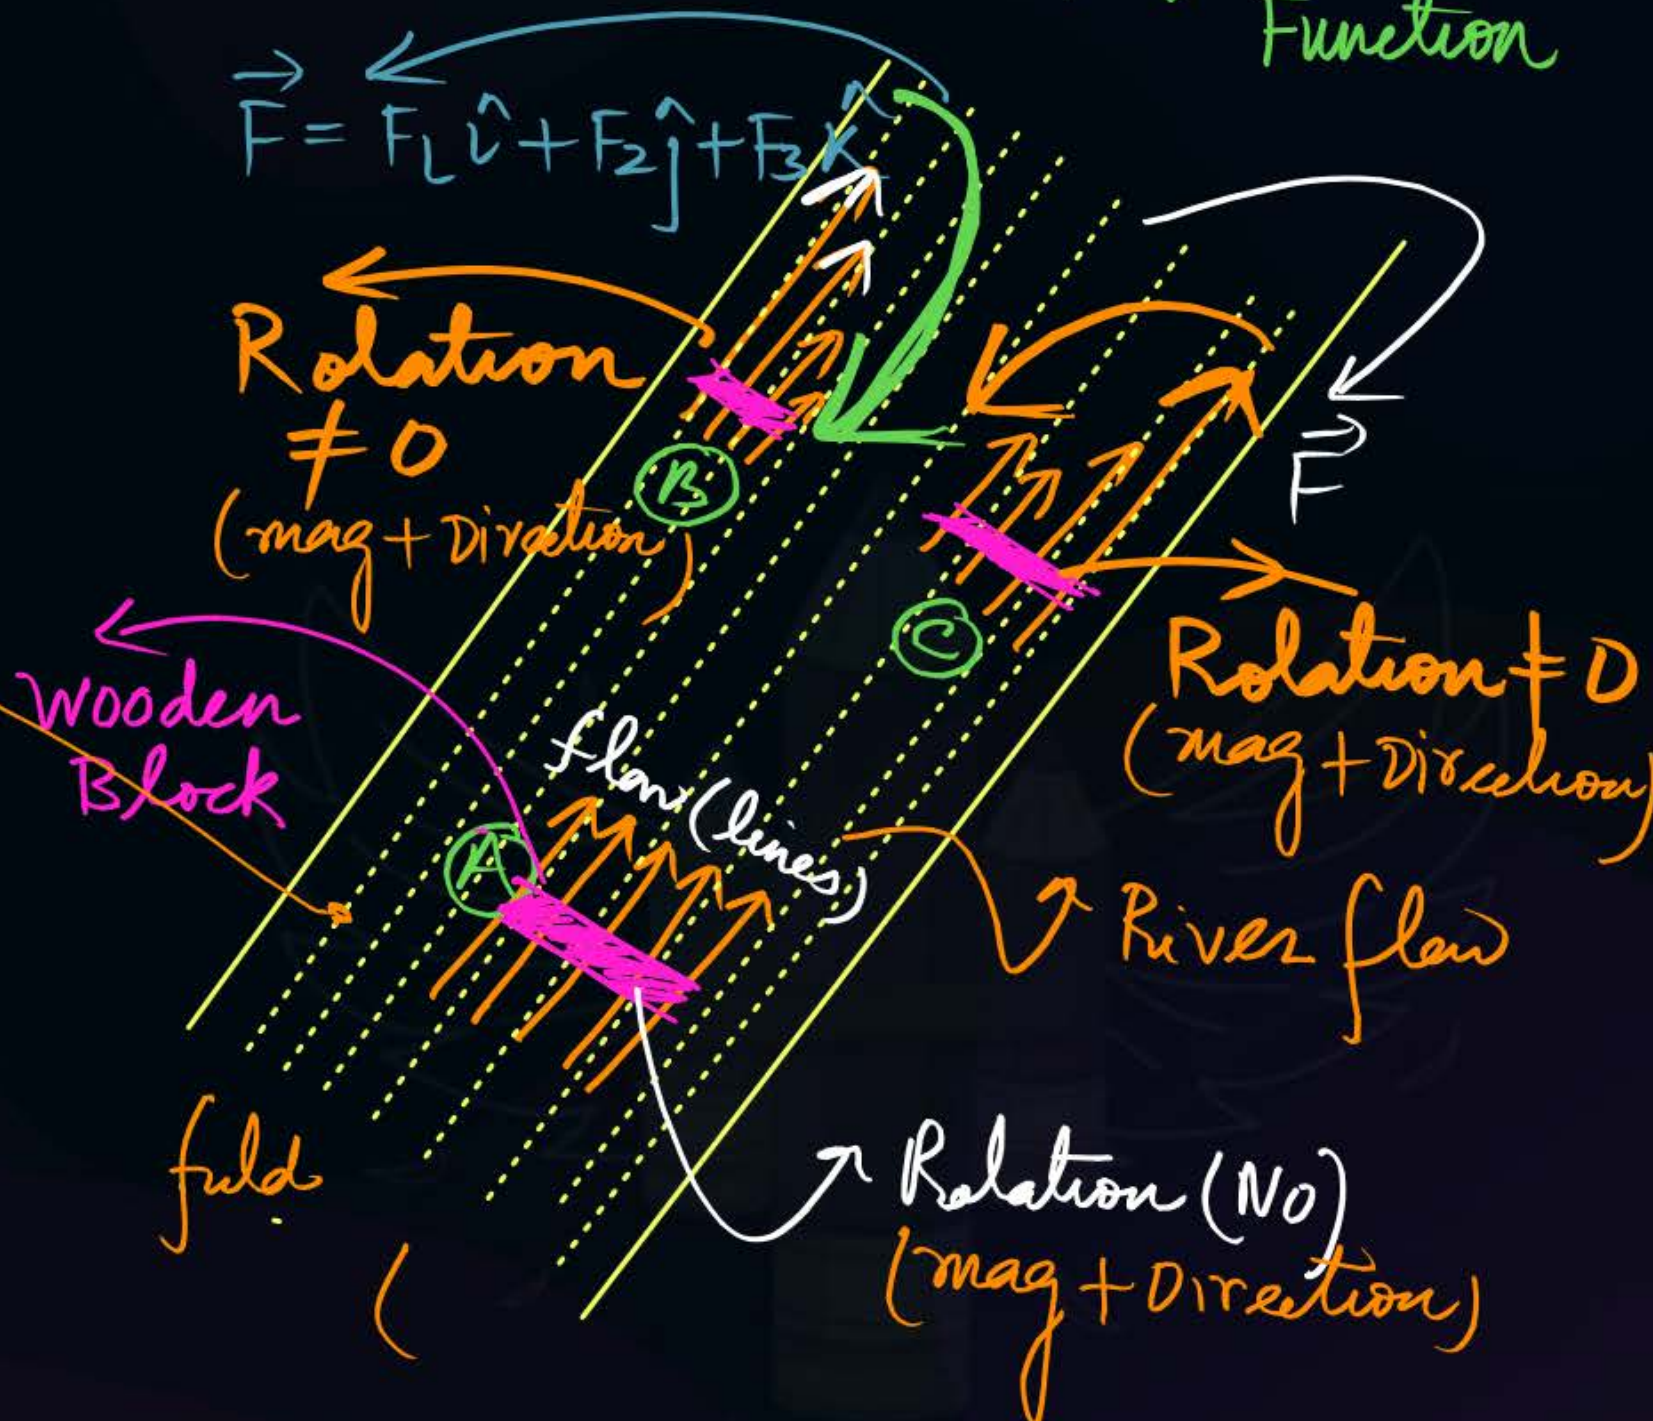 Function
F = F1 î + F2 ĵ + F3 k̂
Rotation
≠ 0
(mag + Direction)
B
F
C
Rotation ≠ 0
(mag + Direction)
Wooden
Block
flow (lines)
A
River flow
field
Rotation (No)
(mag + Direction)
(